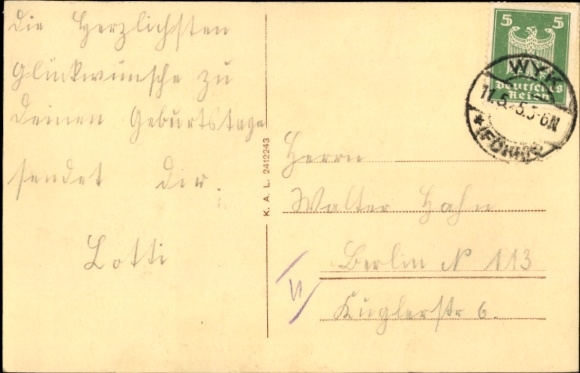 die Herzlichsten
Glückwünsche zu
deinen Geburtstage
sendet dir.
Lotti
K. A. L. 2412243
5 5
Deutsches
Reich
WYK
(FÖHR)
Herrn
Walter Hahn
Berlin N 113
Kuglerstr 6.